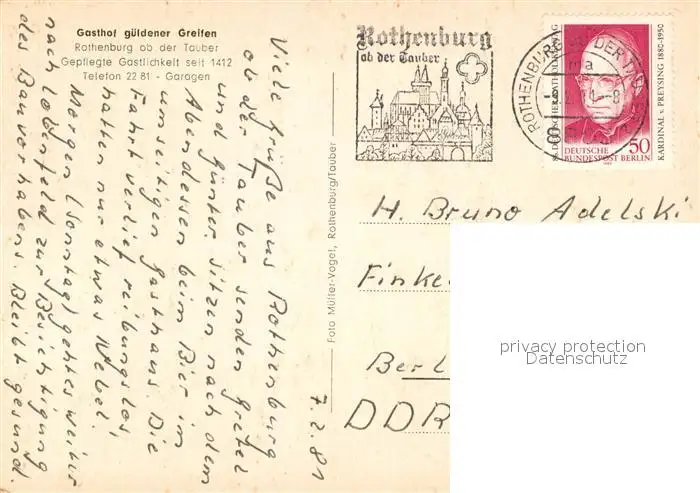 Gasthof güldener Greifen
Rothenburg ob der Tauber
Gepflegte Gastlichkeit seit 1412
Telefon 22 81 - Garagen
7.2.81
Viele Grüße aus Rothenburg
ob der Tauber senden Gretel
und Günter. Sitzen nach dem
Abendessen beim Bier im
umseitigen Gasthaus. Die
Fahrt verlief reibungslos,
hatten nur etwas Nebel.
Morgen (Sonntag) gehts weiter
nach zur Besichtigung
des Bauvorhabens. Bleibt gesund.
Foto Müller-Vogel, Rothenburg/Tauber
Rothenburg
ob der Tauber
ROTHENBURG OB DER TAUBER
DEUTSCHE
BUNDESPOST BERLIN
50
KARDINAL v. PREYSING 1880-1950
H. Bruno Adelski
Finke
Berl
DDR
privacy protection
Datenschutz